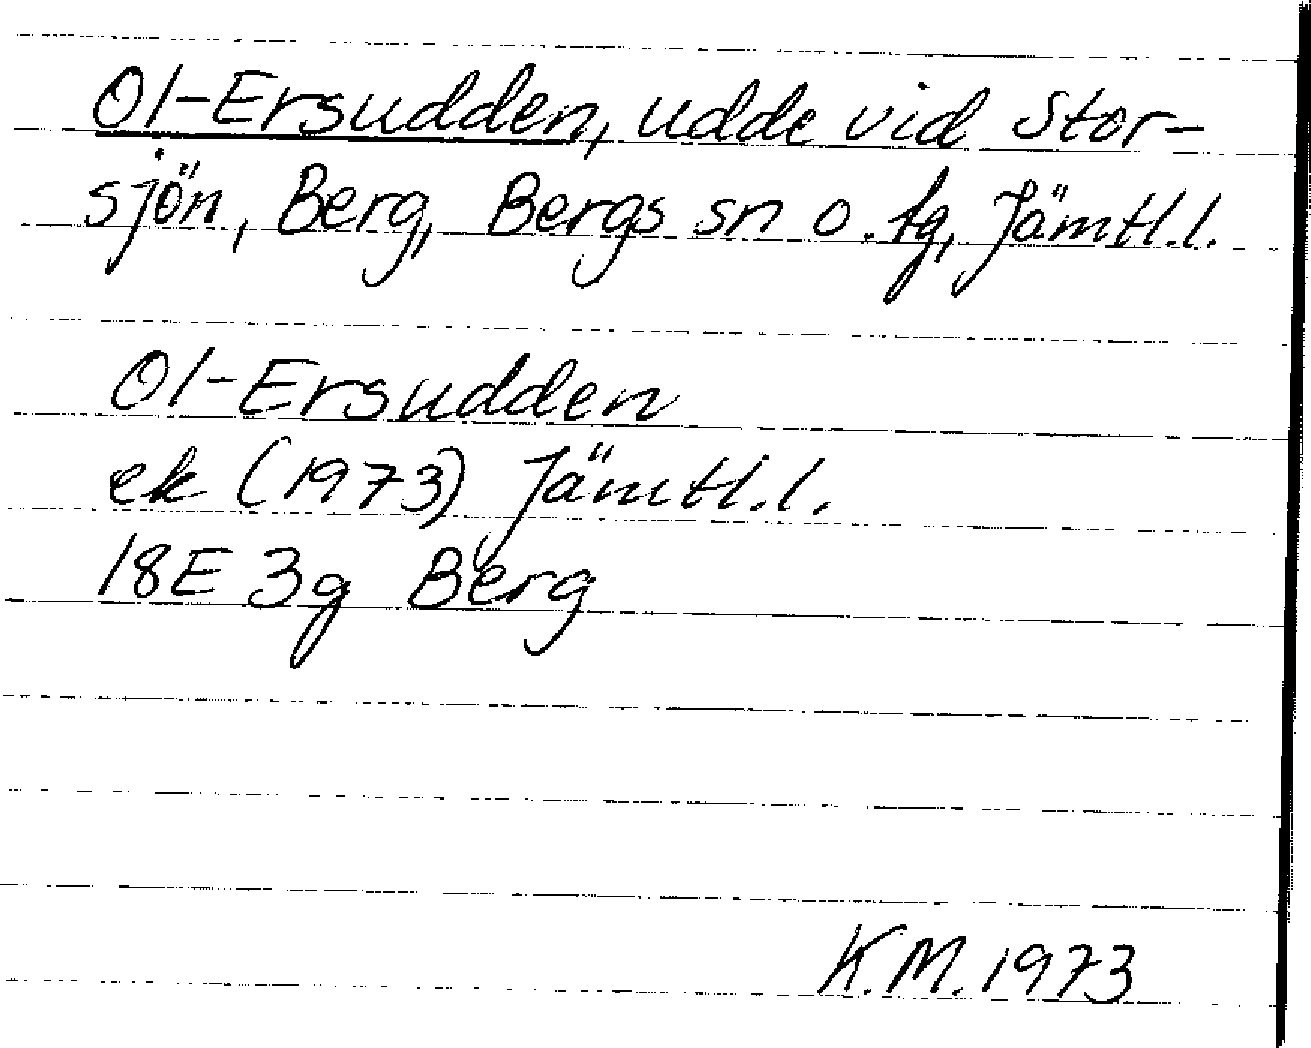 Ol-Ersudden, udde vid Stor-
sjön, Berg, Bergs sn o. tg, Jämtl.l.
Ol-Ersudden
ek (1973) Jämtl.l.
18E 3g Berg
K.M. 1973